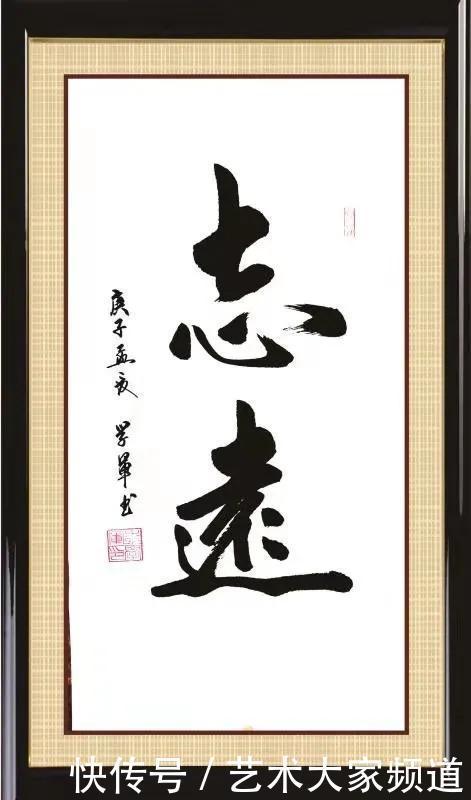 志遠
庚子孟夏 学軍书
快传号 / 艺术大家频道